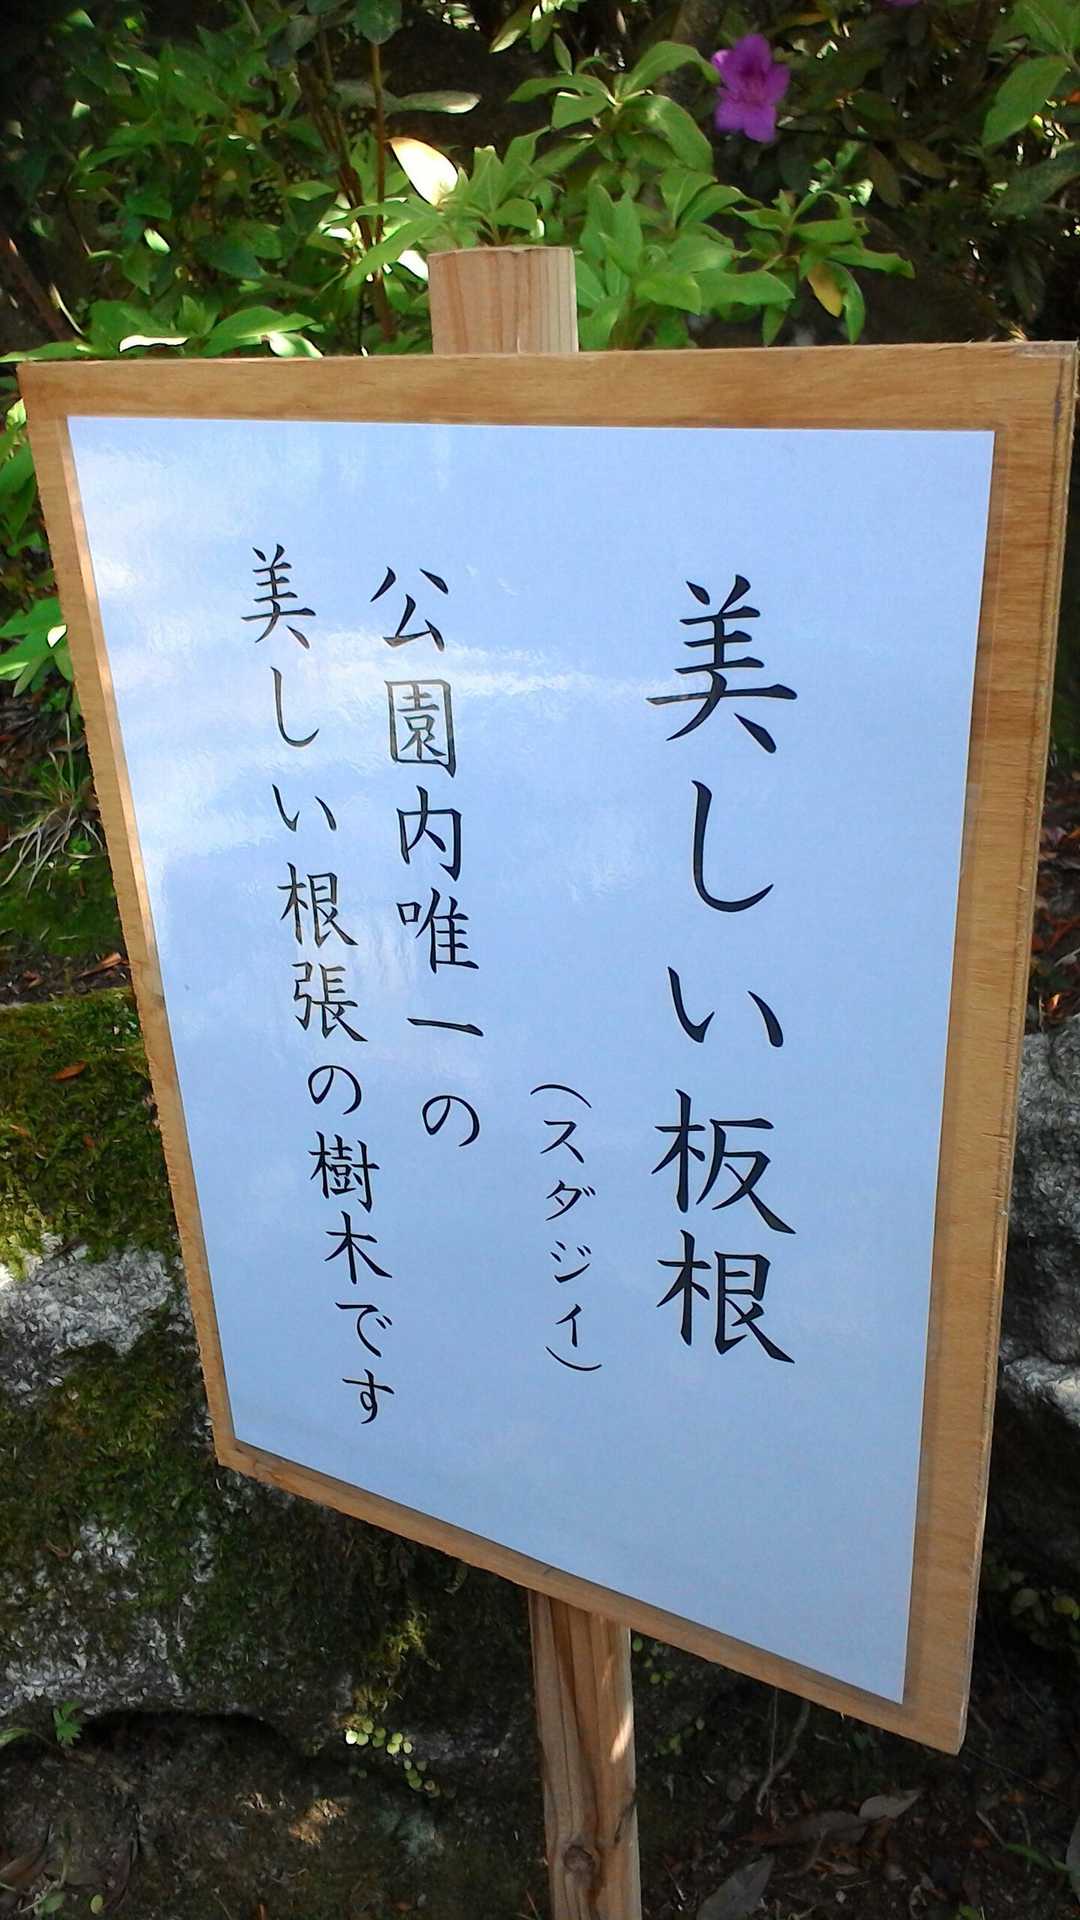 美しい板根
（スダジイ）
公園内唯一の
美しい根張の樹木です